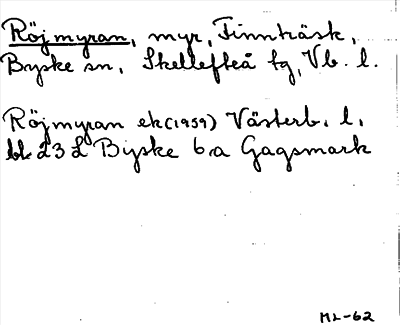 Röjmyran, myr, Finnträsk,
Byske sn, Skellefteå tg, Vb. l.
Röjmyran ek (1959) Västerb. l.
bl. 23 L Byske 6a Gagsmark
ML-62